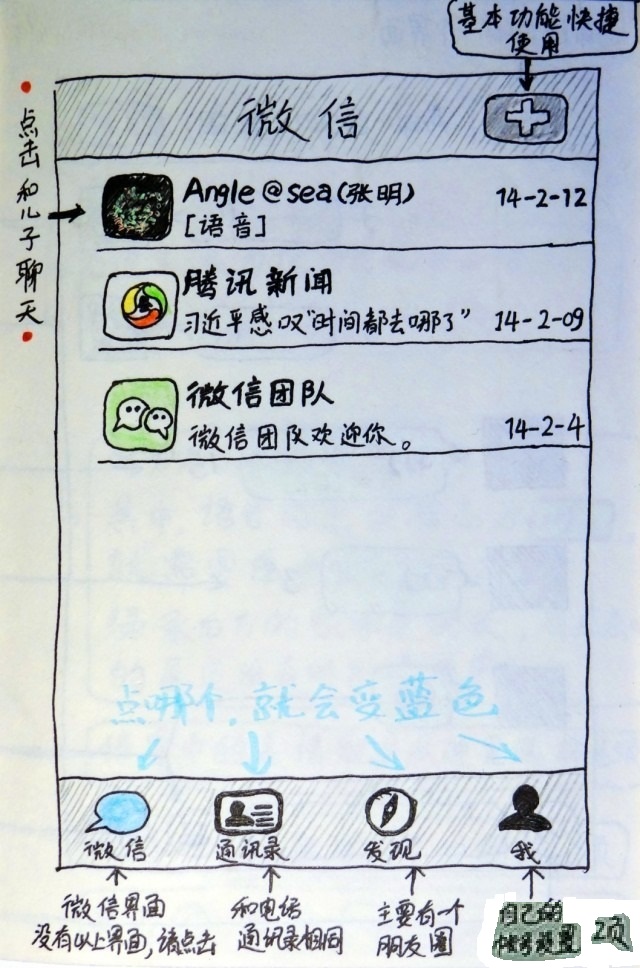 基本功能快捷
使用
微信
点击和儿子聊天
Angle@sea(张明)
14-2-12
[语音]
腾讯新闻
习近平感叹"时间都去哪了"
14-2-09
微信团队
微信团队欢迎你。
14-2-4
点哪个,就会变蓝色
微信
通讯录
发现
我
微信界面
没有以上界面,请点击
和电话
通讯录相同
主要有一个
朋友圈
自己的
设置项